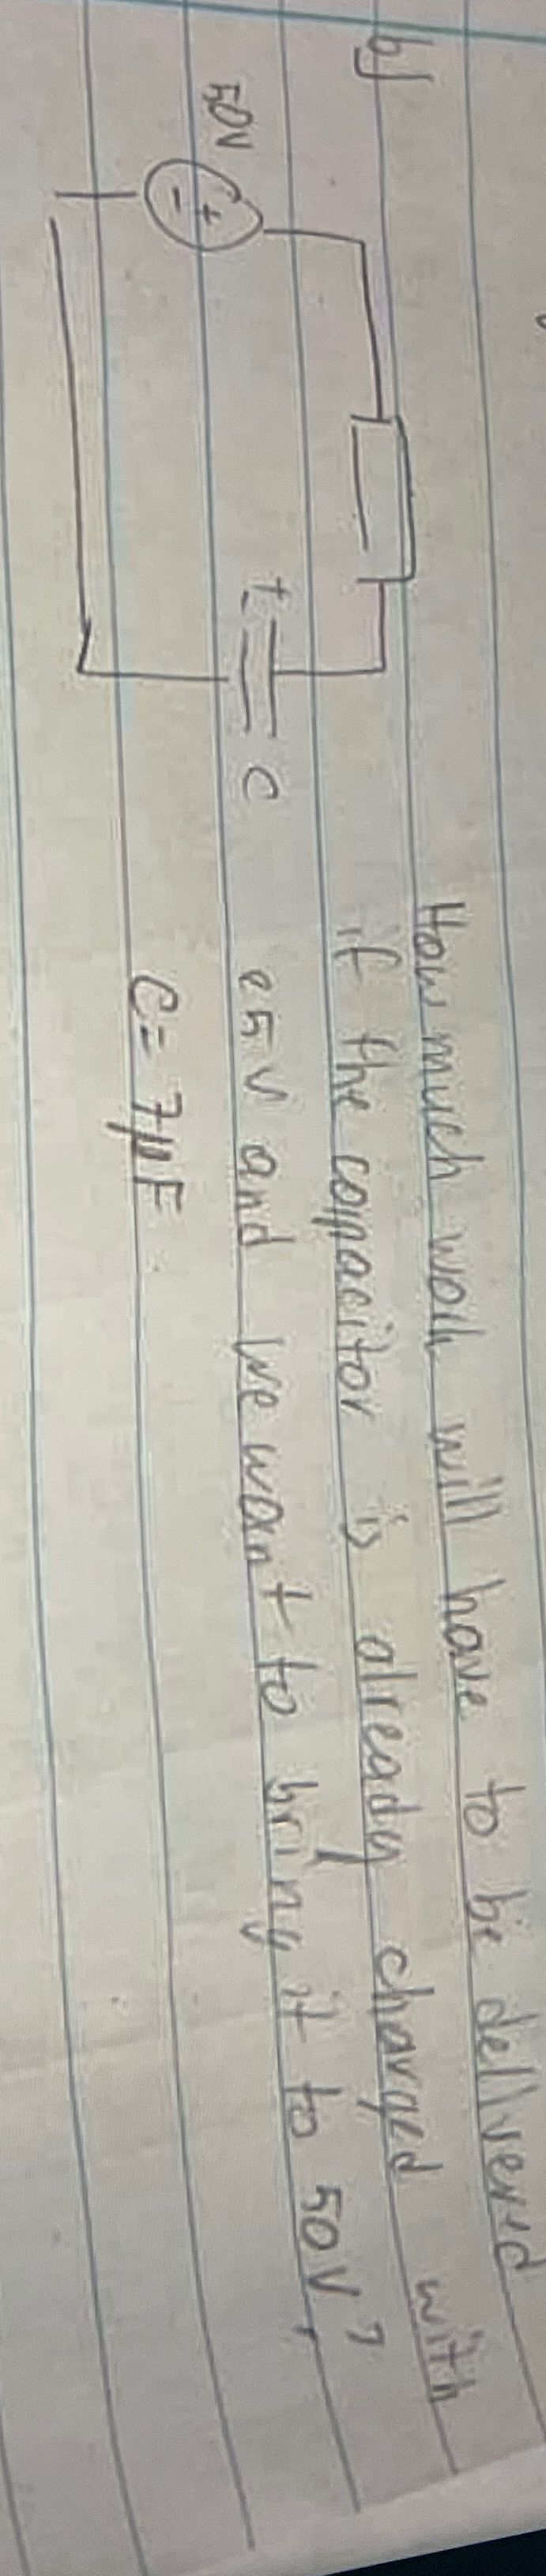 b)
50V
+
-
+
-
C
How much work will have to be delivered
if the capacitor is already charged with
e5V and we want to bring it to 50V?
C = 7µF